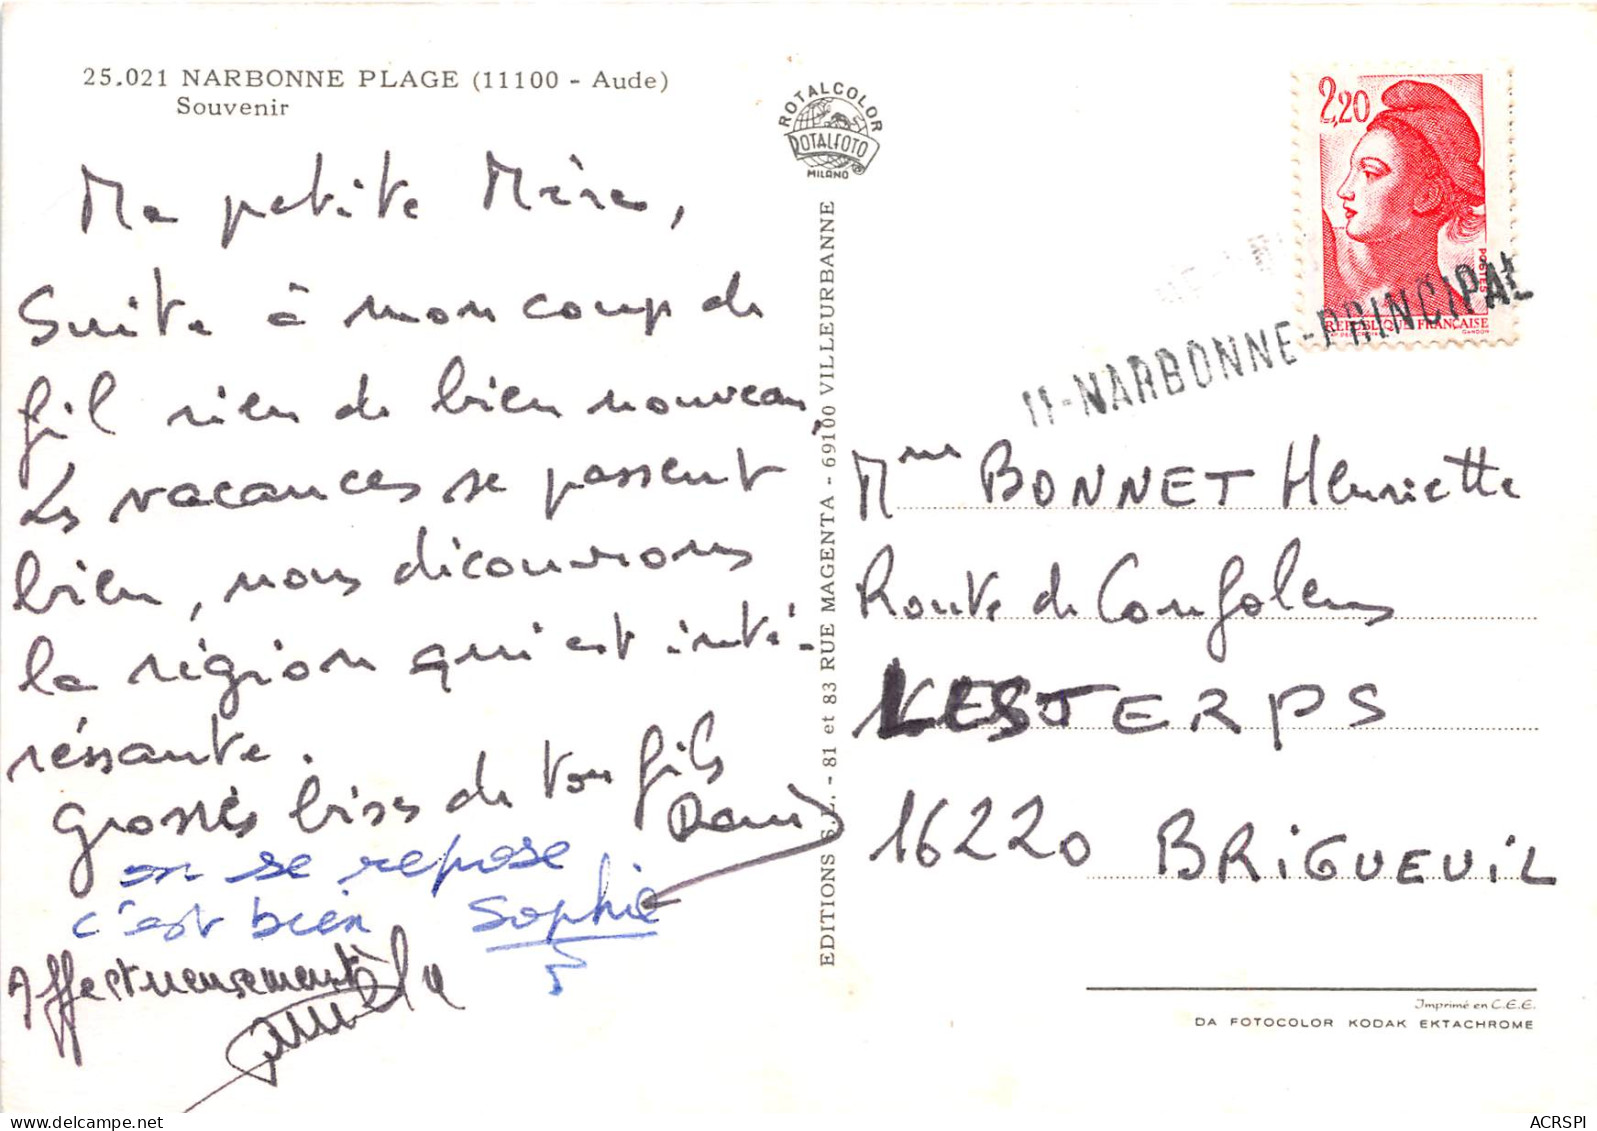 25.021 NARBONNE PLAGE (11100 - Aude)
Souvenir
Ma petite Mère,
Suite à mon coup de
fil rien de bien nouveau,
Les vacances se passent
bien, nous découvrons
la région qui est inté-
ressante.
Grosses bises de ton fils
on se repose
c'est bien Sophie
Affectueusement
ROTALCOLOR
ROTALFOTO
MILANO
EDITIONS S.L. - 81 et 83 RUE MAGENTA - 69100 VILLEURBANNE
2,20
POSTES
REPUBLIQUE FRANÇAISE
GANDON
11-NARBONNE-PRINCIPAL
Mme BONNET Henriette
Route de Confolens
LESTERPS
16220 BRIGUEUIL
Imprimé en C.E.E.
DA FOTOCOLOR KODAK EKTACHROME
ACRSPI